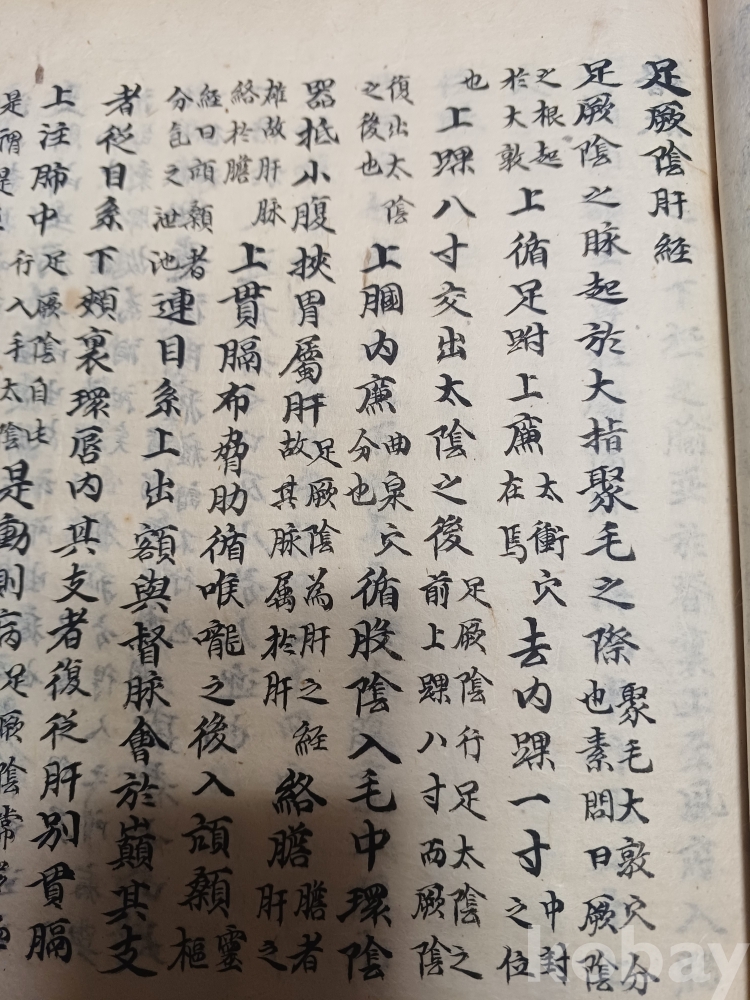 足厥陰肝経
足厥陰之脉起於大指聚毛之際聚毛大敦穴分也素問曰厥陰
之根起於大敦上循足跗上廉太衝穴在焉去内踝一寸中封之位
也上踝八寸交出太陰之後足厥陰行足太陰之前上踝八寸而厥陰
復出太陰之後也上膕内廉曲泉穴分也循股陰入毛中環陰
器抵小腹挾胃屬肝足厥陰為肝之経故其脉属於肝絡膽膽者肝之
雄故肝脉絡於膽上貫膈布脅肋循喉嚨之後入頏顙靈樞
経曰頏顙者分気之泄池連目系上出額與督脉會於巓其支
者従目系下頰裏環唇内其支者復従肝別貫膈
上注肺中足厥陰自此行入手太陰是動則病足厥陰常
是謂是
kobay